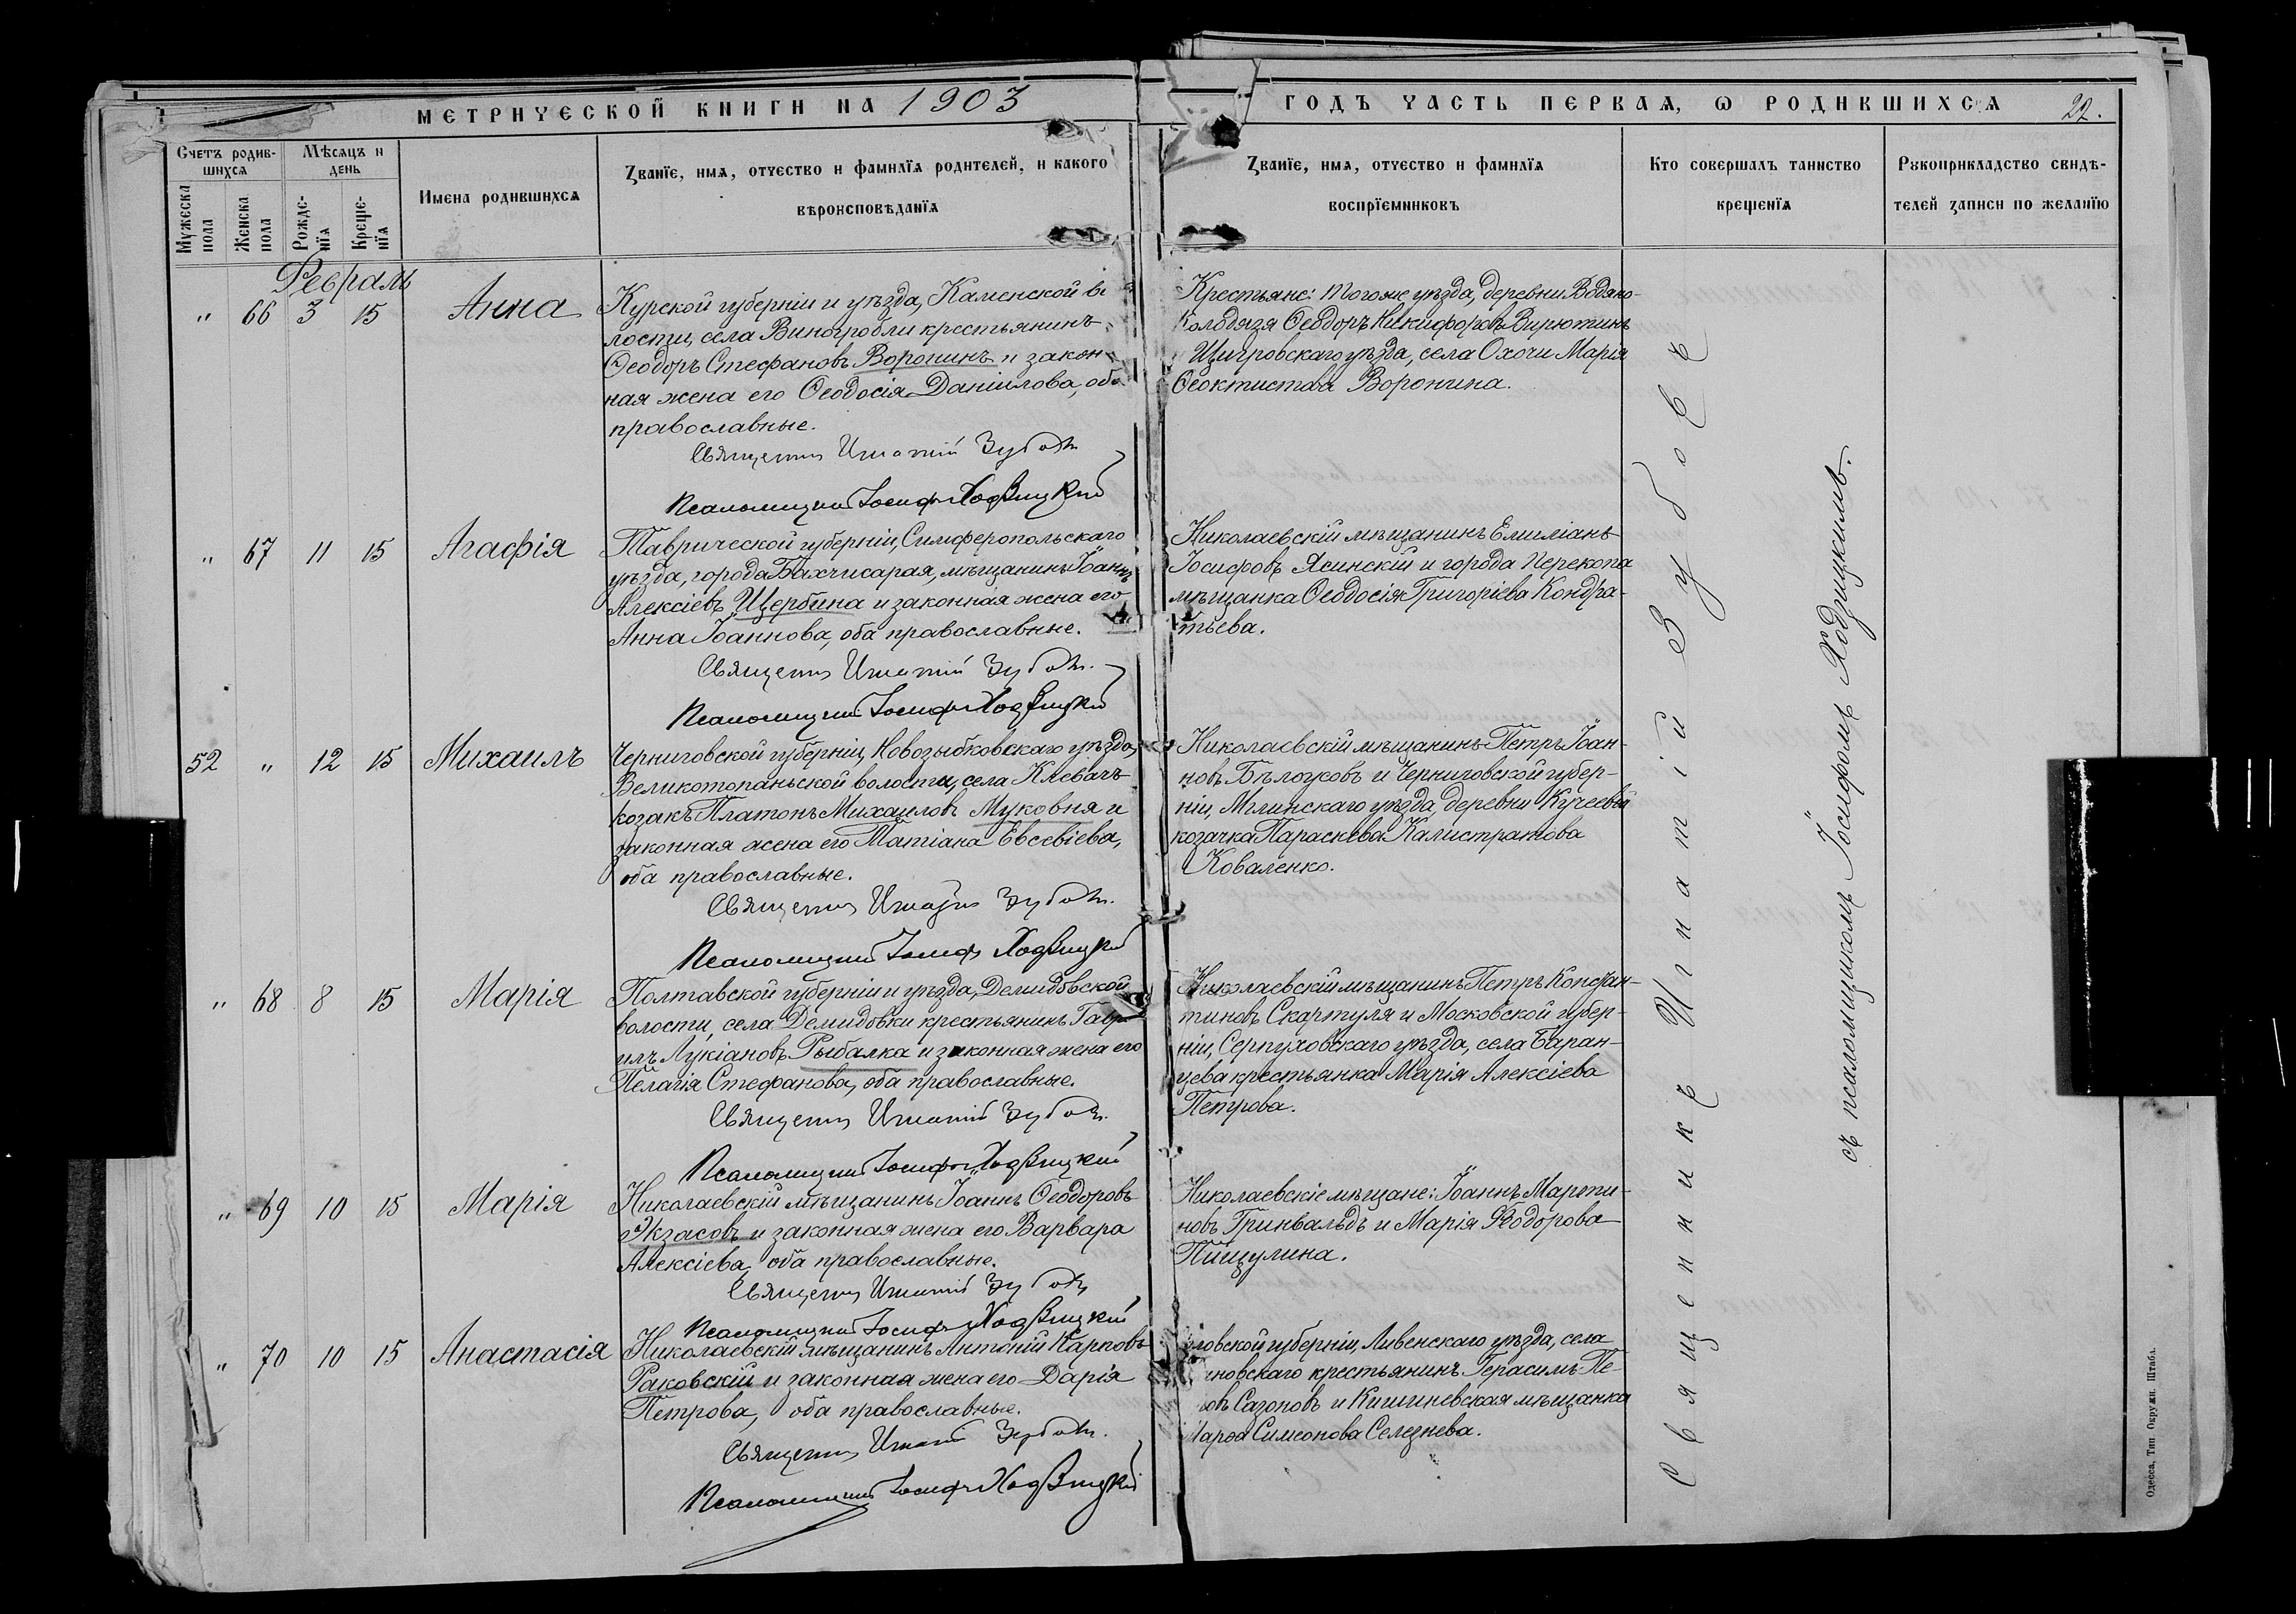 МЕТРИЧЕСКОЙ КНИГИ НА 1903
ГОДЪ ЧАСТЬ ПЕРВАЯ, Ѡ РОДИВШИХСЯ 22.
Счетъ родив-
шихся
Мѣсяцъ и
день
Мужеска
пола
Женска
пола
Рожде-
нїя
Креще-
нїя
Имена родившихся
Званїе, имя, отчество и фамилїя родителей, и какого
вѣроисповѣданїя
Званїе, имя, отчество и фамилїя
воспрїемниковъ
Кто совершалъ таинство
крещенїя
Рукоприкладство свидѣ-
телей записи по желанїю
Февраль
" 66 3 15 Анна
Курской губерніи и уѣзда, Каменской во
лости, села Виногробли крестьянинъ
Ѳеодоръ Стефановъ Воронинъ и закон-
ная жена его Ѳеодосія Даніилова, оба
православные.
Священник Игнатій Зубовъ
Псаломщикъ Іосифъ Ходзицкій
Крестьяне: тогоже уѣзда, деревни Водяно-
Колодязя Ѳеодоръ Никифоровъ Вирютинъ
и Щигровскаго уѣзда, села Охочи Марія
Ѳеоктистова Воронина.
" 67 11 15 Агафія
Таврической губерніи, Симферопольскаго
уѣзда, города Бахчисарая, мѣщанинъ Іоаннъ
Алексіевъ Щербина и законная жена его
Анна Іоаннова, оба православные.
Священник Игнатій Зубовъ.
Псаломщикъ Іосифъ Ходзицкій
Николаевскій мѣщанинъ Емиліанъ
Іосифовъ Ясинскій и города Перекопа
мѣщанка Ѳеодосія Григоріева Кондра-
тьева.
52 " 12 15 Михаилъ
Черниговской губерніи, Новозыбковскаго уѣзда,
Великотопаньской волости, села Клевачъ
козакъ Платонъ Михаиловъ Муковня и
законная жена его Татіана Евсевіева,
оба православные.
Священник Игнатій Зубовъ.
Псаломщикъ Іосифъ Ходзицкій
Николаевскій мѣщанинъ Петръ Іоан-
новъ Бѣлоусковъ и Черниговской губер-
ніи, Мглинскаго уѣзда, деревни Кучеевы
козачка Параскева Калистратова
Коваленко.
" 68 8 15 Марія
Полтавской губерніи и уѣзда, Демидовской
волости, села Демидовки крестьянинъ Гаврі
илъ Лукіановъ Рыбалка и законная жена его
Пелагія Стефанова, оба православные.
Священник Игнатій Зубовъ.
Псаломщикъ Іосифъ Ходзицкій
Николаевскій мѣщанинъ Петръ Констан-
тиновъ Скартуля и Московской губер-
ніи, Серпуховскаго уѣзда, села Баран-
цева крестьянка Марія Алексіева
Петрова.
" 69 10 15 Марія
Николаевскій мѣщанинъ Іоаннъ Ѳеодоровъ
Экзасовъ и законная жена его Варвара
Алексіева, оба православные.
Священник Игнатій Зубовъ
Псаломщикъ Іосифъ Ходзицкій
Николаевскіе мѣщане: Іоаннъ Марти-
новъ Гринвальдъ и Марія Ѳеодорова
Пищулина.
" 70 10 15 Анастасія
Николаевскій мѣщанинъ Антоній Карповъ
Раковскій и законная жена его Дарія
Петрова, оба православные.
Священник Игнатій Зубовъ.
Псаломщикъ Іосифъ Ходзицкій
ловской губерніи, Ливенскаго уѣзда, села
новскаго крестьянинъ Герасимъ Пе-
овъ Сазоновъ и Кишиневская мѣщанка
Марѳа Симеонова Селезнева.
Священникъ Игнатій Зубовъ
съ псаломщикомъ Іосифомъ Ходзицкимъ.
Одесса, Тип. Окружн. Штаба.